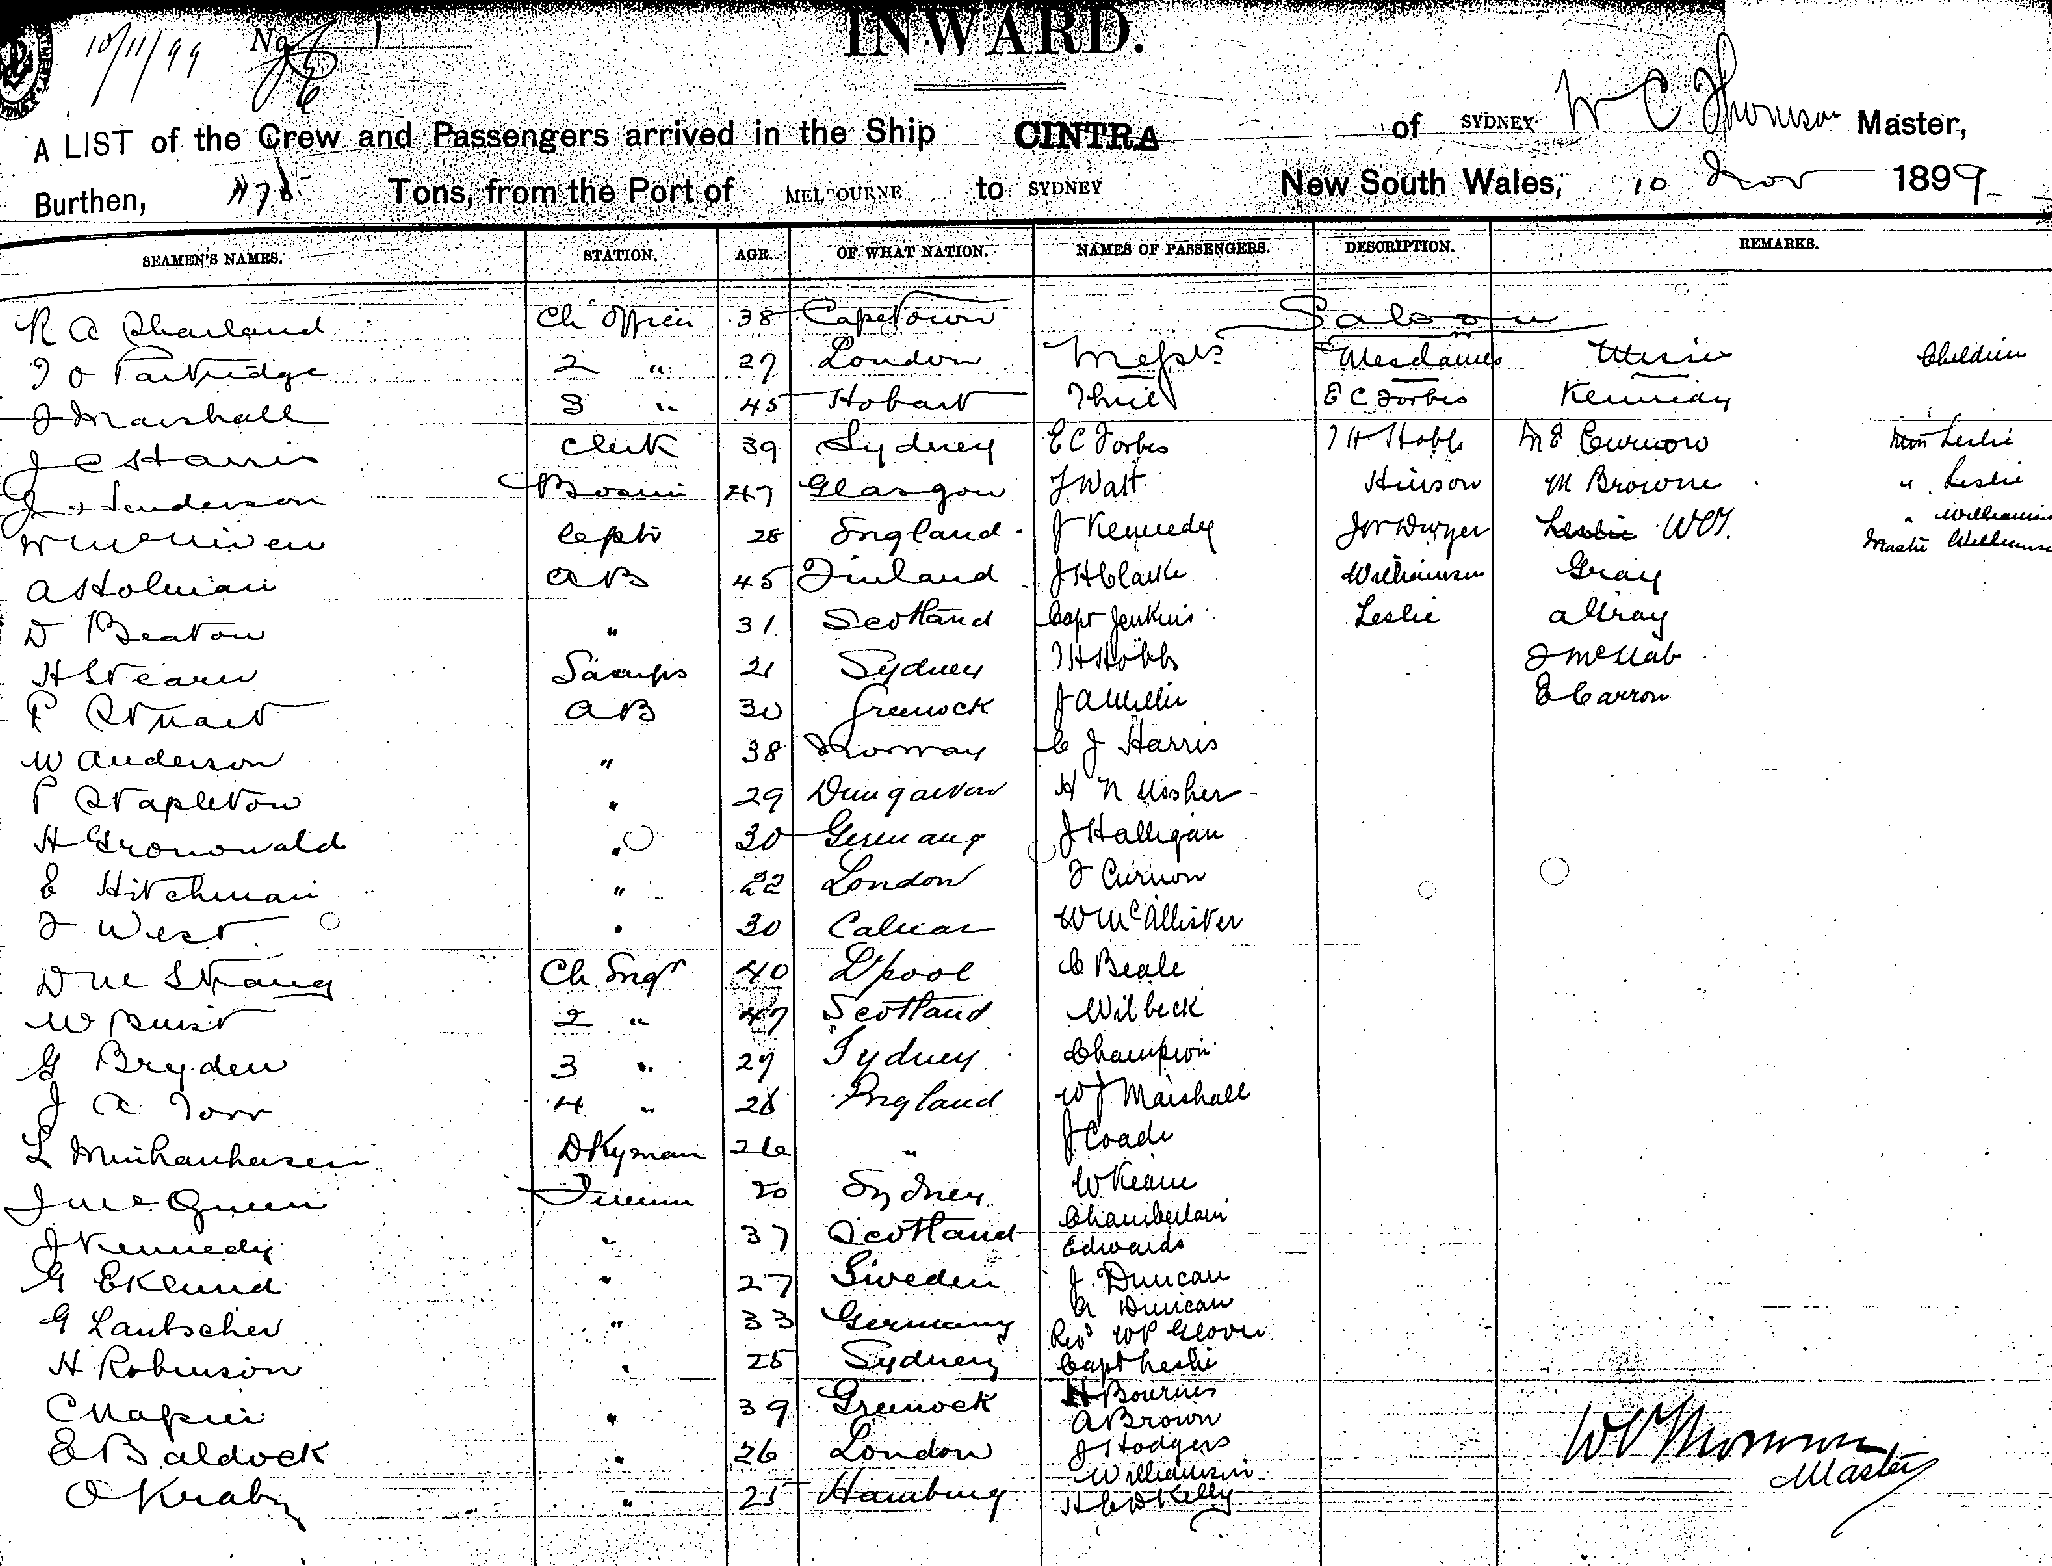 10/11/99 No 1
INWARD.
A LIST of the Crew and Passengers arrived in the Ship CINTRA of SYDNEY W C Thomson Master,
Burthen, Tons, from the Port of MELBOURNE to SYDNEY New South Wales, 10 Nov 1899
SEAMEN'S NAMES. STATION. AGE. OF WHAT NATION. NAMES OF PASSENGERS. DESCRIPTION. REMARKS.
R A Sharland Ch Officer 38 Capetown Saloon
J O Partridge 2 " 27 London Messrs Mesdames Misses Children
J Marshall 3 " 45 Hobart E C Forbes Kennedy
J C Harris Clerk 39 Sydney E C Forbes T H Hobbs M E Curnow Miss Leslie
J Henderson Bosun 47 Glasgow J Watt Hinson M Browne " Leslie
W McNiven 28 England J Kennedy Dwyer Leslie " Williamson
Master Williamson
A Holman AB 45 Finland J H Clarke Williamson Gray
D Beaton " 31 Scotland Capt Jenkins Leslie A Gray
H Stearn Lamps 21 Sydney T H Hobbs J McNab
P Stuart AB 30 Greenock J A Miller E Carron
W Anderson " 38 Norway C J Harris
P Stapleton " 29 Dungarvan H N Ussher
H Gronowald " 30 Germany J Halligan
E Hitchman " 22 London J Curnow
J West " 30 W McAllister
D McStrang Ch Engr 40 L'pool C Beale
W Buist 2 " 47 Scotland Wilbeck
G Bryden 3 " 29 Sydney Champion
J A Torr 4 " 26 England W J Marshall
L Minhanheisen DKyman 26 " J Coade
J McQueen Fireman 20 Sydney W Keane
Chamberlain
J Kennedy " 37 Scotland Edwards
G Eklund " 27 Sweden J Duncan
A Duncan
G Lautscher " 33 Germany Revd W P Glover
H Robinson " 25 Sydney Capt Leslie
H Bournes
C Napier " 39 Greenock A Brown
E Baldock " 26 London J Hodgers
Williamson
O Kraby " 25 Hamburg H C D Kelly
W C Thomson
Master